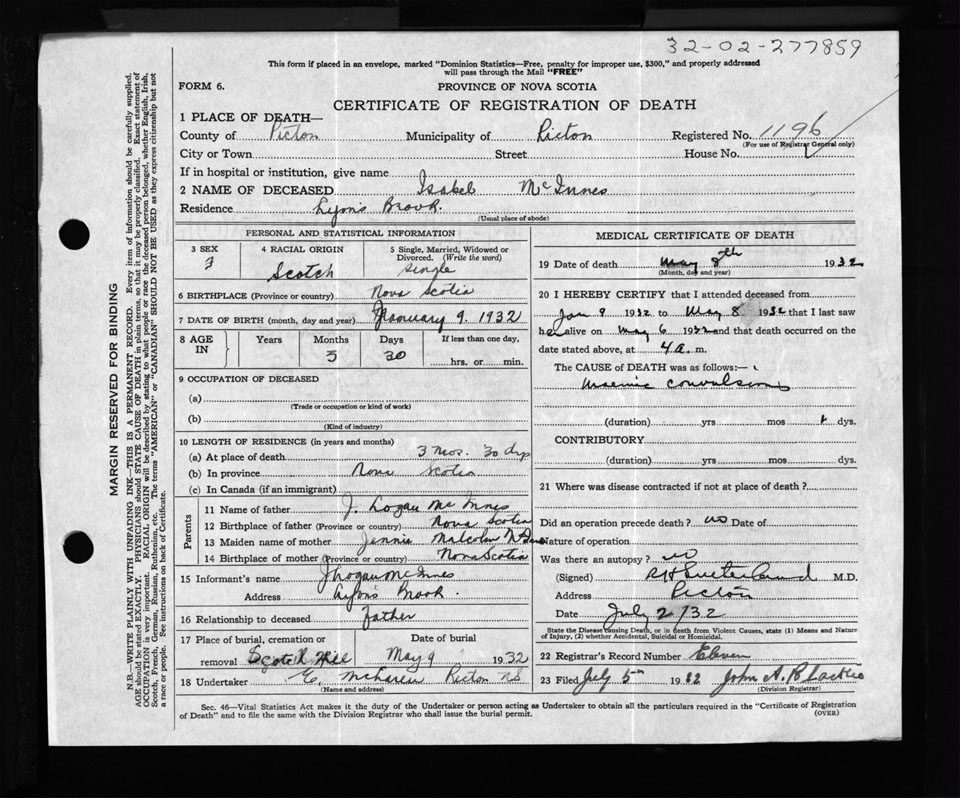 32-02-277859
This form if placed in an envelope, marked "Dominion Statistics—Free, penalty for improper use, $300," and properly addressed
will pass through the Mail "FREE"
FORM 6.
PROVINCE OF NOVA SCOTIA
CERTIFICATE OF REGISTRATION OF DEATH
1 PLACE OF DEATH—
County of Picton Municipality of Picton Registered No. 1196
(For use of Registrar General only)
City or Town Street House No.
If in hospital or institution, give name
2 NAME OF DECEASED Isabel McInnes
Residence Lyon's Brook.
(Usual place of abode)
PERSONAL AND STATISTICAL INFORMATION
3 SEX 4 RACIAL ORIGIN 5 Single, Married, Widowed or
Divorced. (Write the word)
F Scotch Single
6 BIRTHPLACE (Province or country) Nova Scotia
7 DATE OF BIRTH (month, day and year) January 9. 1932
8 AGE IN Years Months Days If less than one day,
3 30
hrs. or min.
9 OCCUPATION OF DECEASED
(a)
(Trade or occupation or kind of work)
(b)
(Kind of industry)
10 LENGTH OF RESIDENCE (in years and months)
(a) At place of death 3 Mos. 30 dys
(b) In province Nova Scotia
(c) In Canada (if an immigrant)
Parents
11 Name of father J. Logan McInnes
12 Birthplace of father (Province or country) Nova Scotia
13 Maiden name of mother Jennie Malcolm
14 Birthplace of mother (Province or country) Nova Scotia
15 Informant's name J Logan McInnes
Address Lyon's Brook.
16 Relationship to deceased Father
17 Place of burial, cremation or Date of burial
removal Scotch Hill May 9 1932
18 Undertaker Picton NS
(Name and address)
MEDICAL CERTIFICATE OF DEATH
19 Date of death May 8th 1932
(Month, day and year)
20 I HEREBY CERTIFY that I attended deceased from
Jan 9 1932 to May 8 1932 that I last saw
her alive on May 6 1932 and that death occurred on
date stated above, at 4 a. m.
The CAUSE of DEATH was as follows:—
Uraemic convulsions
(duration) yrs mos dys.
CONTRIBUTORY
(duration) yrs mos dys.
21 Where was disease contracted if not at place of death?
Did an operation precede death? no Date of
Nature of operation
Was there an autopsy? no
(Signed) Sutherland M.D.
Address Picton
Date July 2/32
State the Disease causing Death, or in death from Violent Causes, state (1) Means and Nature
of Injury, (2) whether Accidental, Suicidal or Homicidal.
22 Registrar's Record Number Eleven
23 Filed July 5th 1932 John A. Blackie
(Division Registrar)
Sec. 46—Vital Statistics Act makes it the duty of the Undertaker or person acting as Undertaker to obtain all the particulars required in the "Certificate of Registration
of Death" and to file the same with the Division Registrar who shall issue the burial permit.
(OVER)
MARGIN RESERVED FOR BINDING
N.B.—WRITE PLAINLY WITH UNFADING INK—THIS IS A PERMANENT RECORD. Every item of information should be carefully supplied.
AGE should be stated EXACTLY. PHYSICIANS should STATE CAUSE OF DEATH in plain terms, so that it may be properly classified. Exact statement of
OCCUPATION is very important. RACIAL ORIGIN will be described by stating to what people or race the deceased person belonged, whether English, Irish,
Scotch, French, German, Russian, Ruthenian, etc. The terms "AMERICAN" or "CANADIAN" SHOULD NOT BE USED as they express citizenship but not
a race or people. See instructions on back of Certificate.